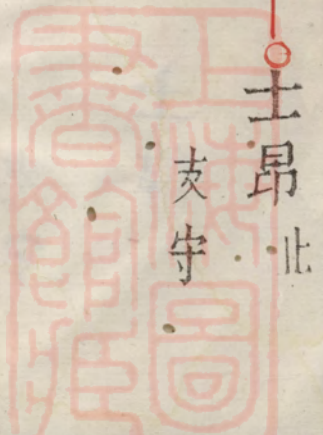 士昂 止
支守
上海圖
書館藏